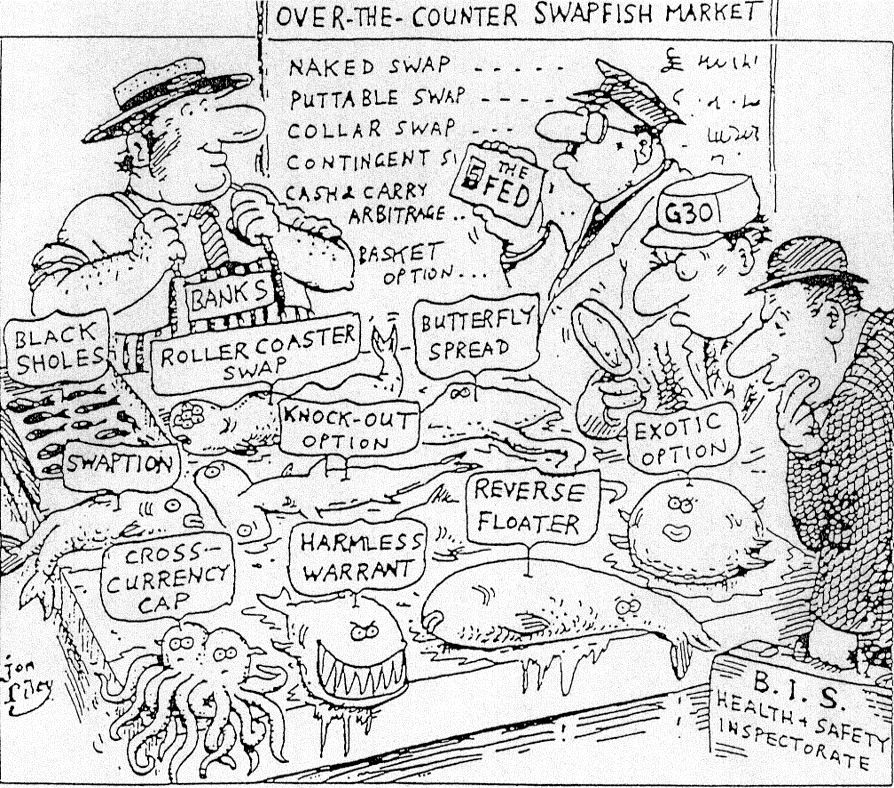 OVER-THE-COUNTER SWAPFISH MARKET
NAKED SWAP - - - - - £
PUTTABLE SWAP - - - -
COLLAR SWAP - - -
CONTINGENT
CASH & CARRY
ARBITRAGE ..
BASKET
OPTION...
THE
FED
G30
BANKS
BLACK
SHOLES
ROLLER COASTER
SWAP
BUTTERFLY
SPREAD
KNOCK-OUT
OPTION
EXOTIC
OPTION
SWAPTION
REVERSE
FLOATER
CROSS-
CURRENCY
CAP
HARMLESS
WARRANT
B.I.S.
HEALTH + SAFETY
INSPECTORATE
Jon
Riley